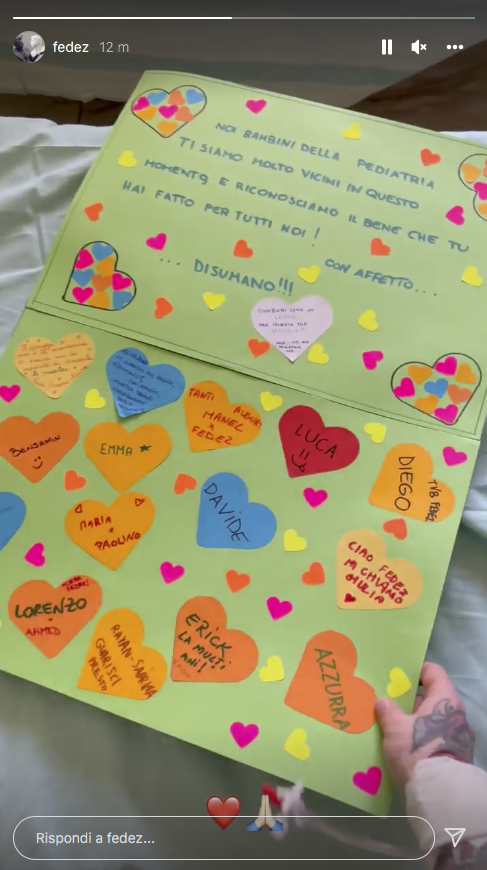 fedez 12 m
NOI BAMBINI DELLA PEDIATRIA
TI SIAMO MOLTO VICINI IN QUESTO
MOMENTO E RICONOSCIAMO IL BENE CHE TU
HAI FATTO PER TUTTI NOI!
CON AFFETTO...
... DISUMANO!!!
TANTI AUGURI
MANEL
FEDEZ
BENJAMIN
EMMA
LUCA
DIEGO
TVB FEDEZ
DAVIDE
MARIA
PAOLINO
CIAO FEDEZ
MI CHIAMO
GIULIA
LORENZO
AHMED
RAYAN-SAMIRA
GUARISCI
PRESTO
ERICK
LA MULTI
ANI!
AZZURRA
Rispondi a fedez...